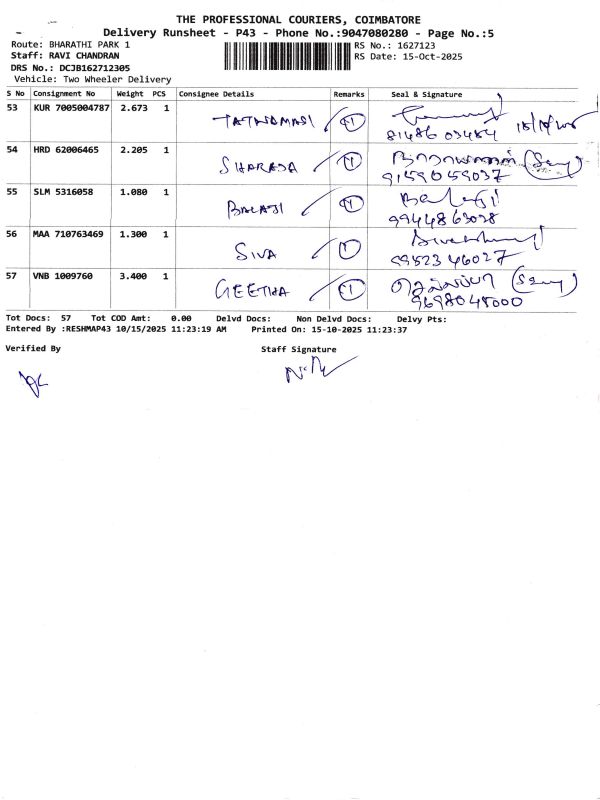 THE PROFESSIONAL COURIERS, COIMBATORE
Delivery Runsheet - P43 - Phone No.:9047080280 - Page No.:5
Route: BHARATHI PARK 1 RS No.: 1627123
Staff: RAVI CHANDRAN RS Date: 15-Oct-2025
DRS No.: DCJB162712305
Vehicle: Two Wheeler Delivery
S No Consignment No Weight PCS Consignee Details Remarks Seal & Signature
53 KUR 7005004787 2.673 1 1
81486 03484
54 HRD 62006465 2.205 1 SHARADA 1
9159059037
55 SLM 5316058 1.080 1 BALAJI 1 Balaji
9944863028
56 MAA 710763469 1.300 1 SIVA 1
99523 46027
57 VNB 1009760 3.400 1 GEETHA 1
9698048000
Tot Docs: 57 Tot COD Amt: 0.00 Delvd Docs: Non Delvd Docs: Delvy Pts:
Entered By :RESHMAP43 10/15/2025 11:23:19 AM Printed On: 15-10-2025 11:23:37
Verified By Staff Signature